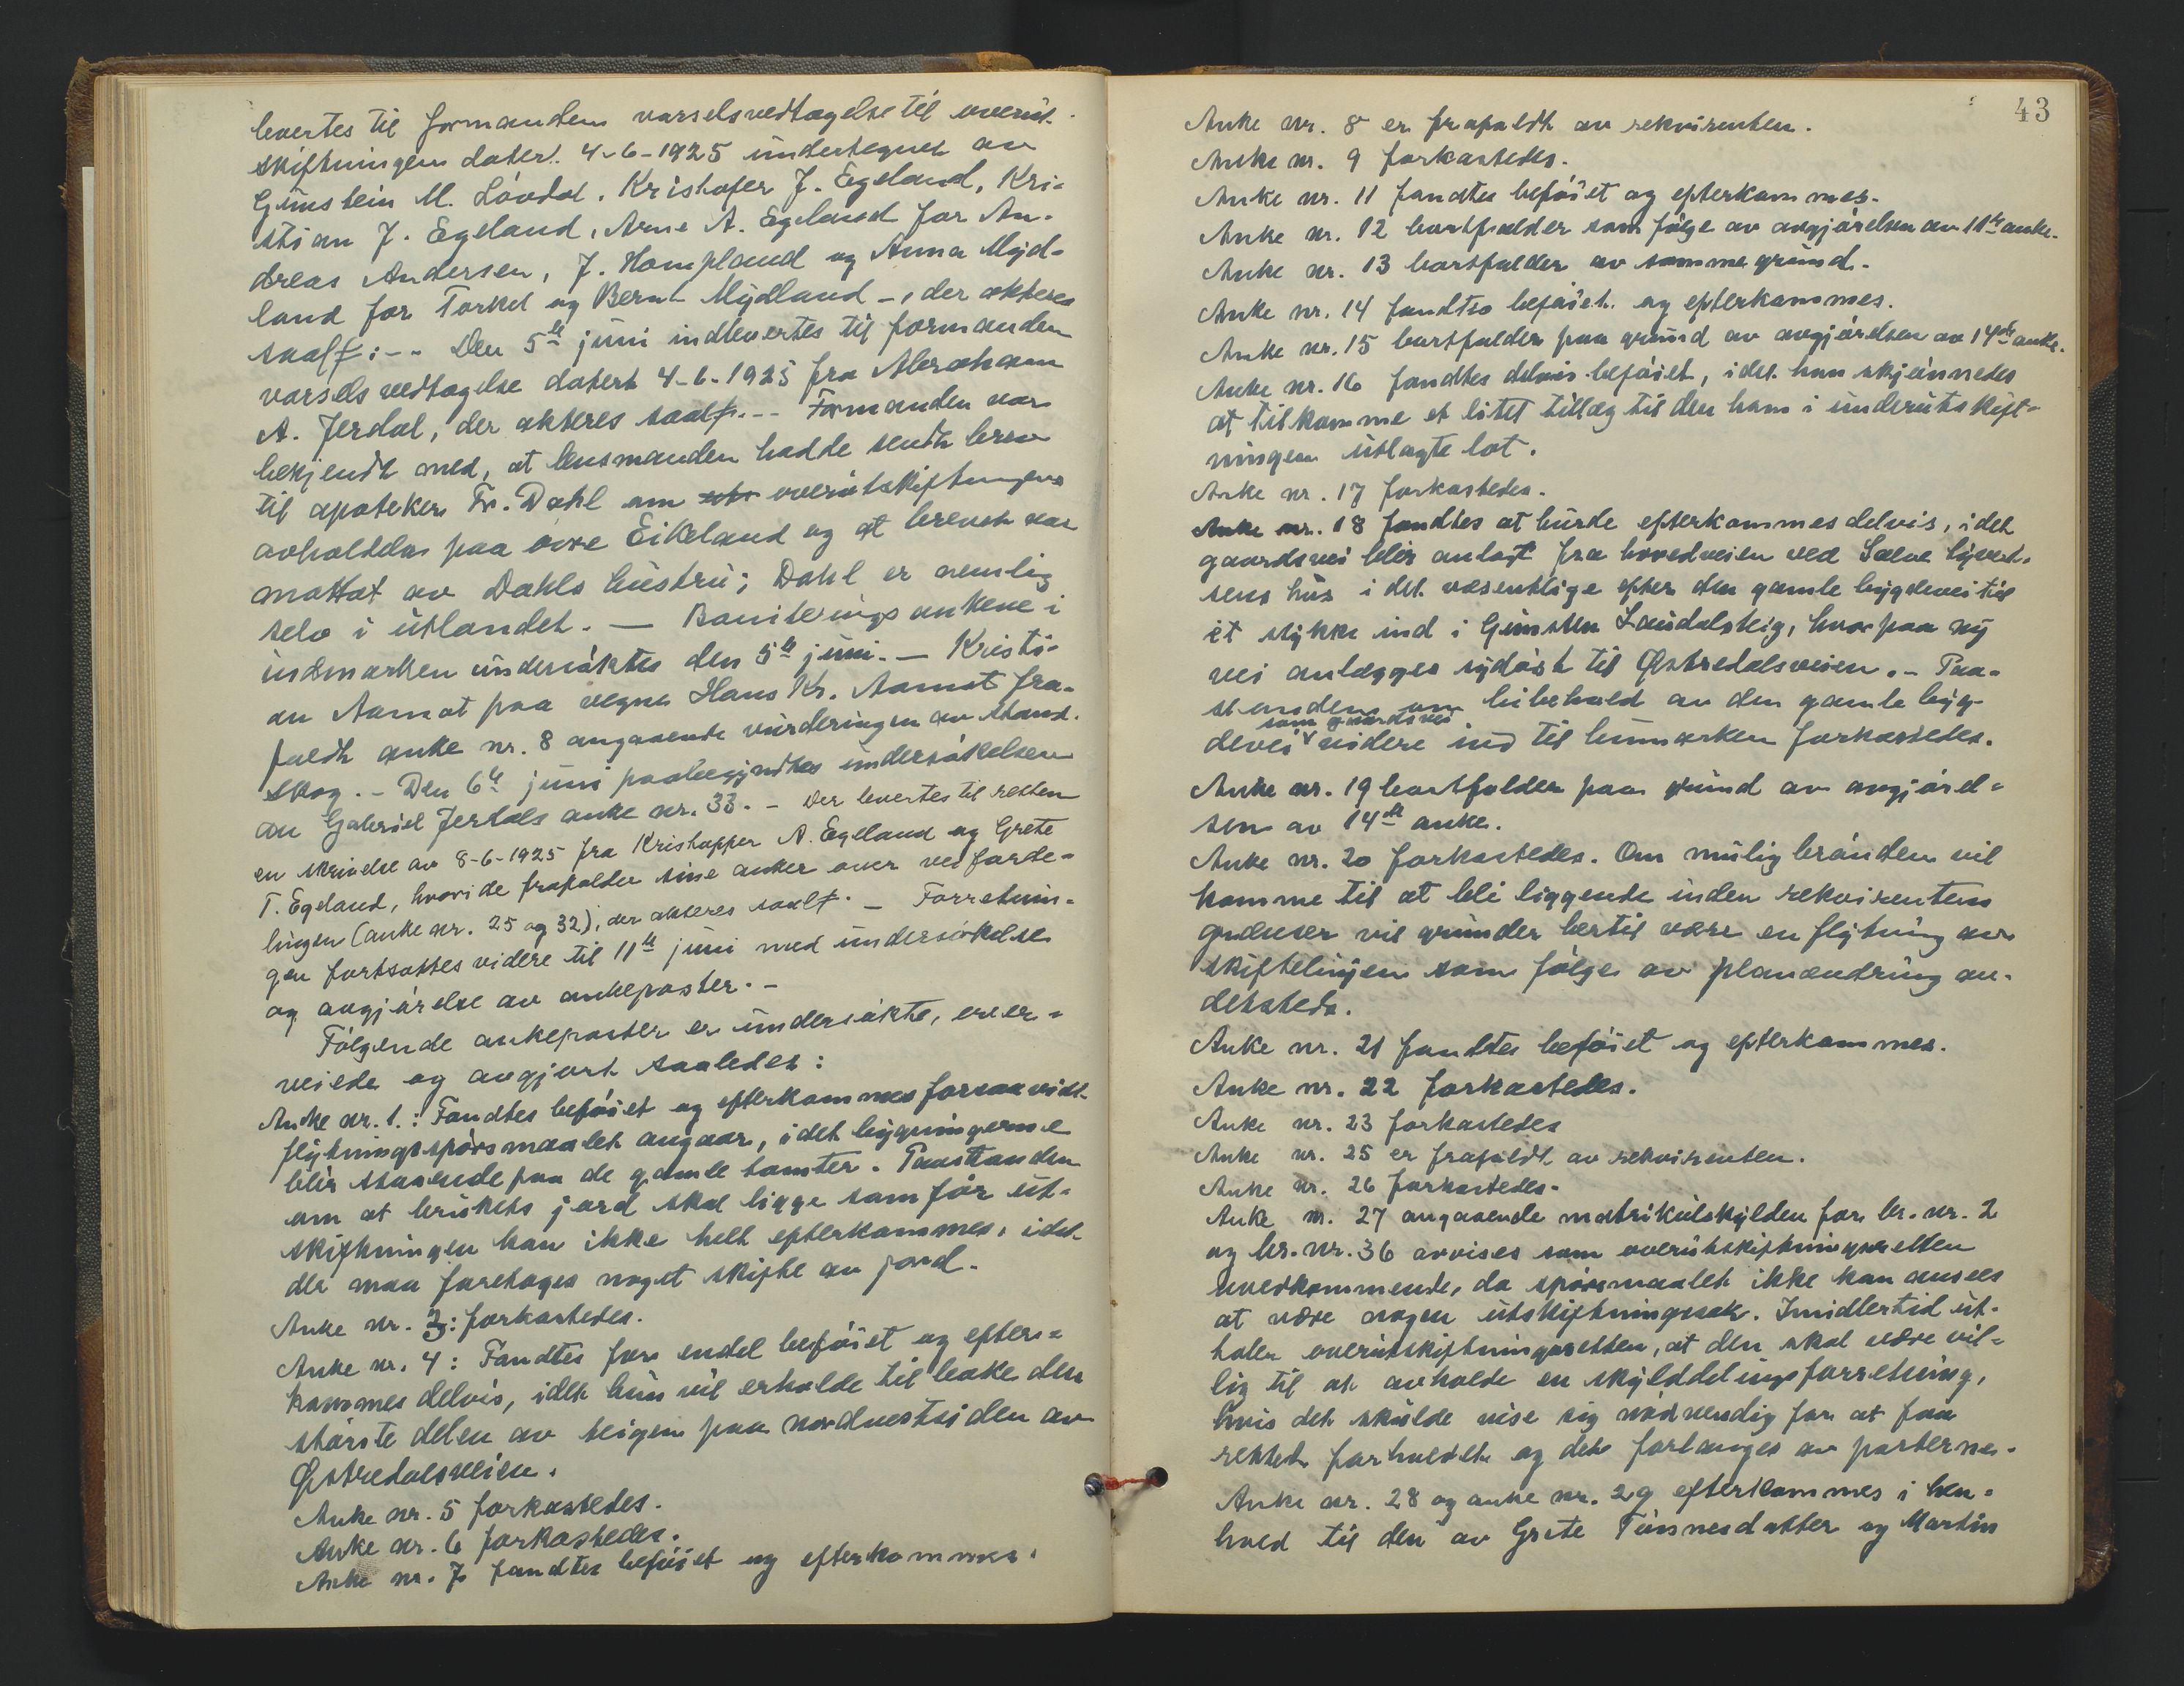 levertes til formanden varselsvedtagelse til overut-
skiftningen datert. 4-6-1925 undertegnet av
Gunstein M. Lövdal, Kristofer J. Egeland, Kri-
stian J. Egeland, Arne A. Egeland for An-
dreas Andersen, J. Hompland og Anna Myd-
land for Torkel og Bernt Mydland -, der akteres
saalf:-- Den 5te juni indlevertes til formanden
varselsvedtagelse datert 4-6-1925 fra Abraham
A. Jerdal, der akteres saalf.-- Formanden var
bekjendt med, at lensmanden hadde sendt brev
til apoteker Fr. Dahl om overutskiftningens
avholdelse paa övre Eikeland og at brevet var
mottat av Dahls hustru; Dahl er nemlig
selv i utlandet. - Boniteringsankene i
indmarken undersöktes den 5te juni. - Kristi-
an Aamot paa vegne Hans Kr. Aamot fra-
faldt anke nr. 8 angaaende vurderingen av stand.
skog. - Den 6te juni paabegyndtes undersökelsen
av Gabriel Jerdals anke nr. 33. - Der levertes til retten
en skrivelse av 8-6-1925 fra Kristoffer A. Egeland og Grete
T. Egeland, hvori de frafalder sine anker over veiforde-
lingen (anke nr. 25 og 32), der akteres saalf. - Forretnin-
gen fortsattes videre til 11te juni med undersökelse
og avgjörelse av ankeposter. -
Fölgende ankeposter er undersökte, over-
veiede og avgjort saaledes:
Anke nr. 1.: Fandtes beföiet og efterkommes forsaavidt
flytningsspörsmaalet angaar, idet bygningerne
blir staaende paa de gamle tomter. Paastanden
om at brukets jord skal ligge som för ut-
skiftningen kan ikke helt efterkommes, idet
der maa foretages noget skifte av jord.
Anke nr. 3: forkastedes.
Anke nr. 4: Fandtes for endel beföiet og efter-
kommes delvis, idet hun vil erholde tilbake den
störste delen av teigen paa nordvestsiden av
Østredalsveien.
Anke nr. 5 forkastedes.
Anke nr. 6 forkastedes.
Anke nr. 7 fandtes beföiet og efterkommes.
43
Anke nr. 8 er frafaldt av rekvirenten.
Anke nr. 9 forkastedes.
Anke nr. 11 fandtes beföiet og efterkommes.
Anke nr. 12 bortfalder som fölge av avgjörelsen av 11te anke.
Anke nr. 13 bortfalder av samme grund.
Anke nr. 14 fandtes beföiet og efterkommes.
Anke nr. 15 bortfalder paa grund av avgjörelsen av 14de anke.
Anke nr. 16 fandtes delvis beföiet, idet han skjönnedes
at tilkomme et litet tillæg til den ham i underutskift-
ningen utlagte lot.
Anke nr. 17 forkastedes.
Anke nr. 18 fandtes at burde efterkommes delvis, idet
gaardsvei blir anlagt fra hovedveien ved
sens hus i det væsentlige efter den gamle bygdevei til
et stykke ind i Gunstein, hvorpaa ny
vei anlægges sydöst til Østredalsveien. - Paa-
standen om bibehold av den gamle byg-
som gaardsvei
devei videre ind til bumarken forkastedes.
Anke nr. 19 bortfalder paa grund av avgjörel-
sen av 14de anke.
Anke nr. 20 forkastedes. Om mulig brönden vil
komme til at bli liggende inden rekvirentens
grænser vil grunden hertil være en flytning av
skiftelinjen som fölge av planændring an-
detsteds.
Anke nr. 21 fandtes beföiet og efterkommes.
Anke nr. 22 forkastedes.
Anke nr. 23 forkastedes
Anke nr. 25 er frafaldt av rekvirenten.
Anke nr. 26 forkastedes.
Anke nr. 27 angaaende matrikulskylden for br. nr. 2
og br. nr. 36 avvises som overutskiftningsretten
uvedkommende, da spörsmaalet ikke kan ansees
at være nogen utskiftningssak. Imidlertid ut-
taler overutskiftningsretten, at den skal være vil-
lig til at avholde en skylddelingsforretning,
hvis det skulde vise sig nödvendig for at faa
rettet forholdet og det forlanges av parterne.
Anke nr. 28 og anke nr. 29 efterkommes i hen-
hold til den av Grete Tönnesdatter og Martin